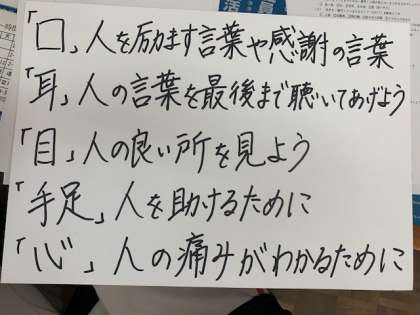 「口」人を励ます言葉や感謝の言葉
「耳」人の言葉を最後まで聴いてあげよう
「目」人の良い所を見よう
「手足」人を助けるために
「心」人の痛みがわかるために